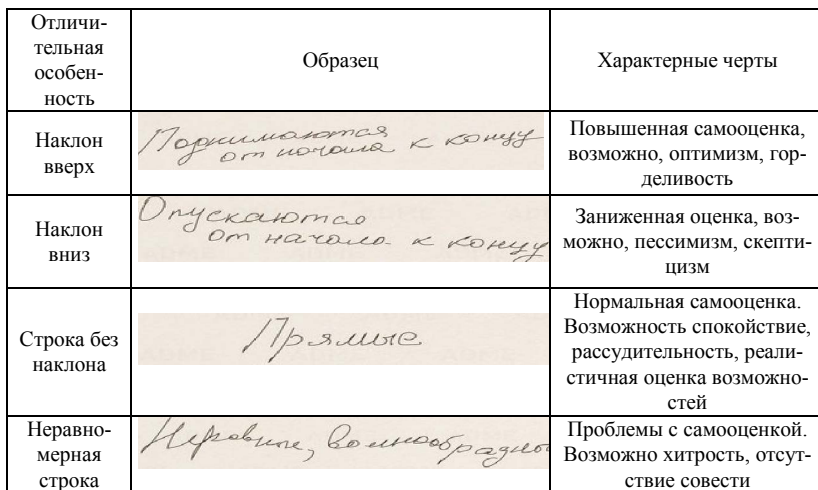 Отличи-
тельная
особен-
ность
Образец
Характерные черты
Наклон
вверх
Поднимаются
от начала к концу
Повышенная самооценка,
возможно, оптимизм, гор-
деливость
Наклон
вниз
Опускаются
от начала к концу
Заниженная оценка, воз-
можно, пессимизм, скепти-
цизм
Строка без
наклона
Прямые
Нормальная самооценка.
Возможность спокойствие,
рассудительность, реали-
стичная оценка возможно-
стей
Неравно-
мерная
строка
Неровные, волнообразны
Проблемы с самооценкой.
Возможно хитрость, отсут-
ствие совести